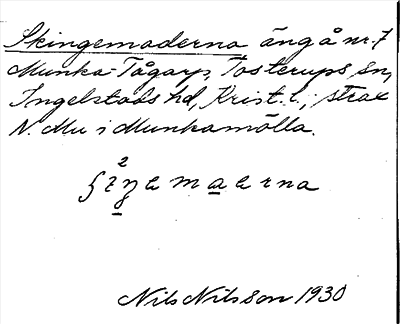 Skingemaderna äng å nr. 7
Munka-Tågarp, Tosterups sn,
Ingelstads hd, Krist. l.; strax
N. Mu i Munkamölla.
Nils Nilsson 1930